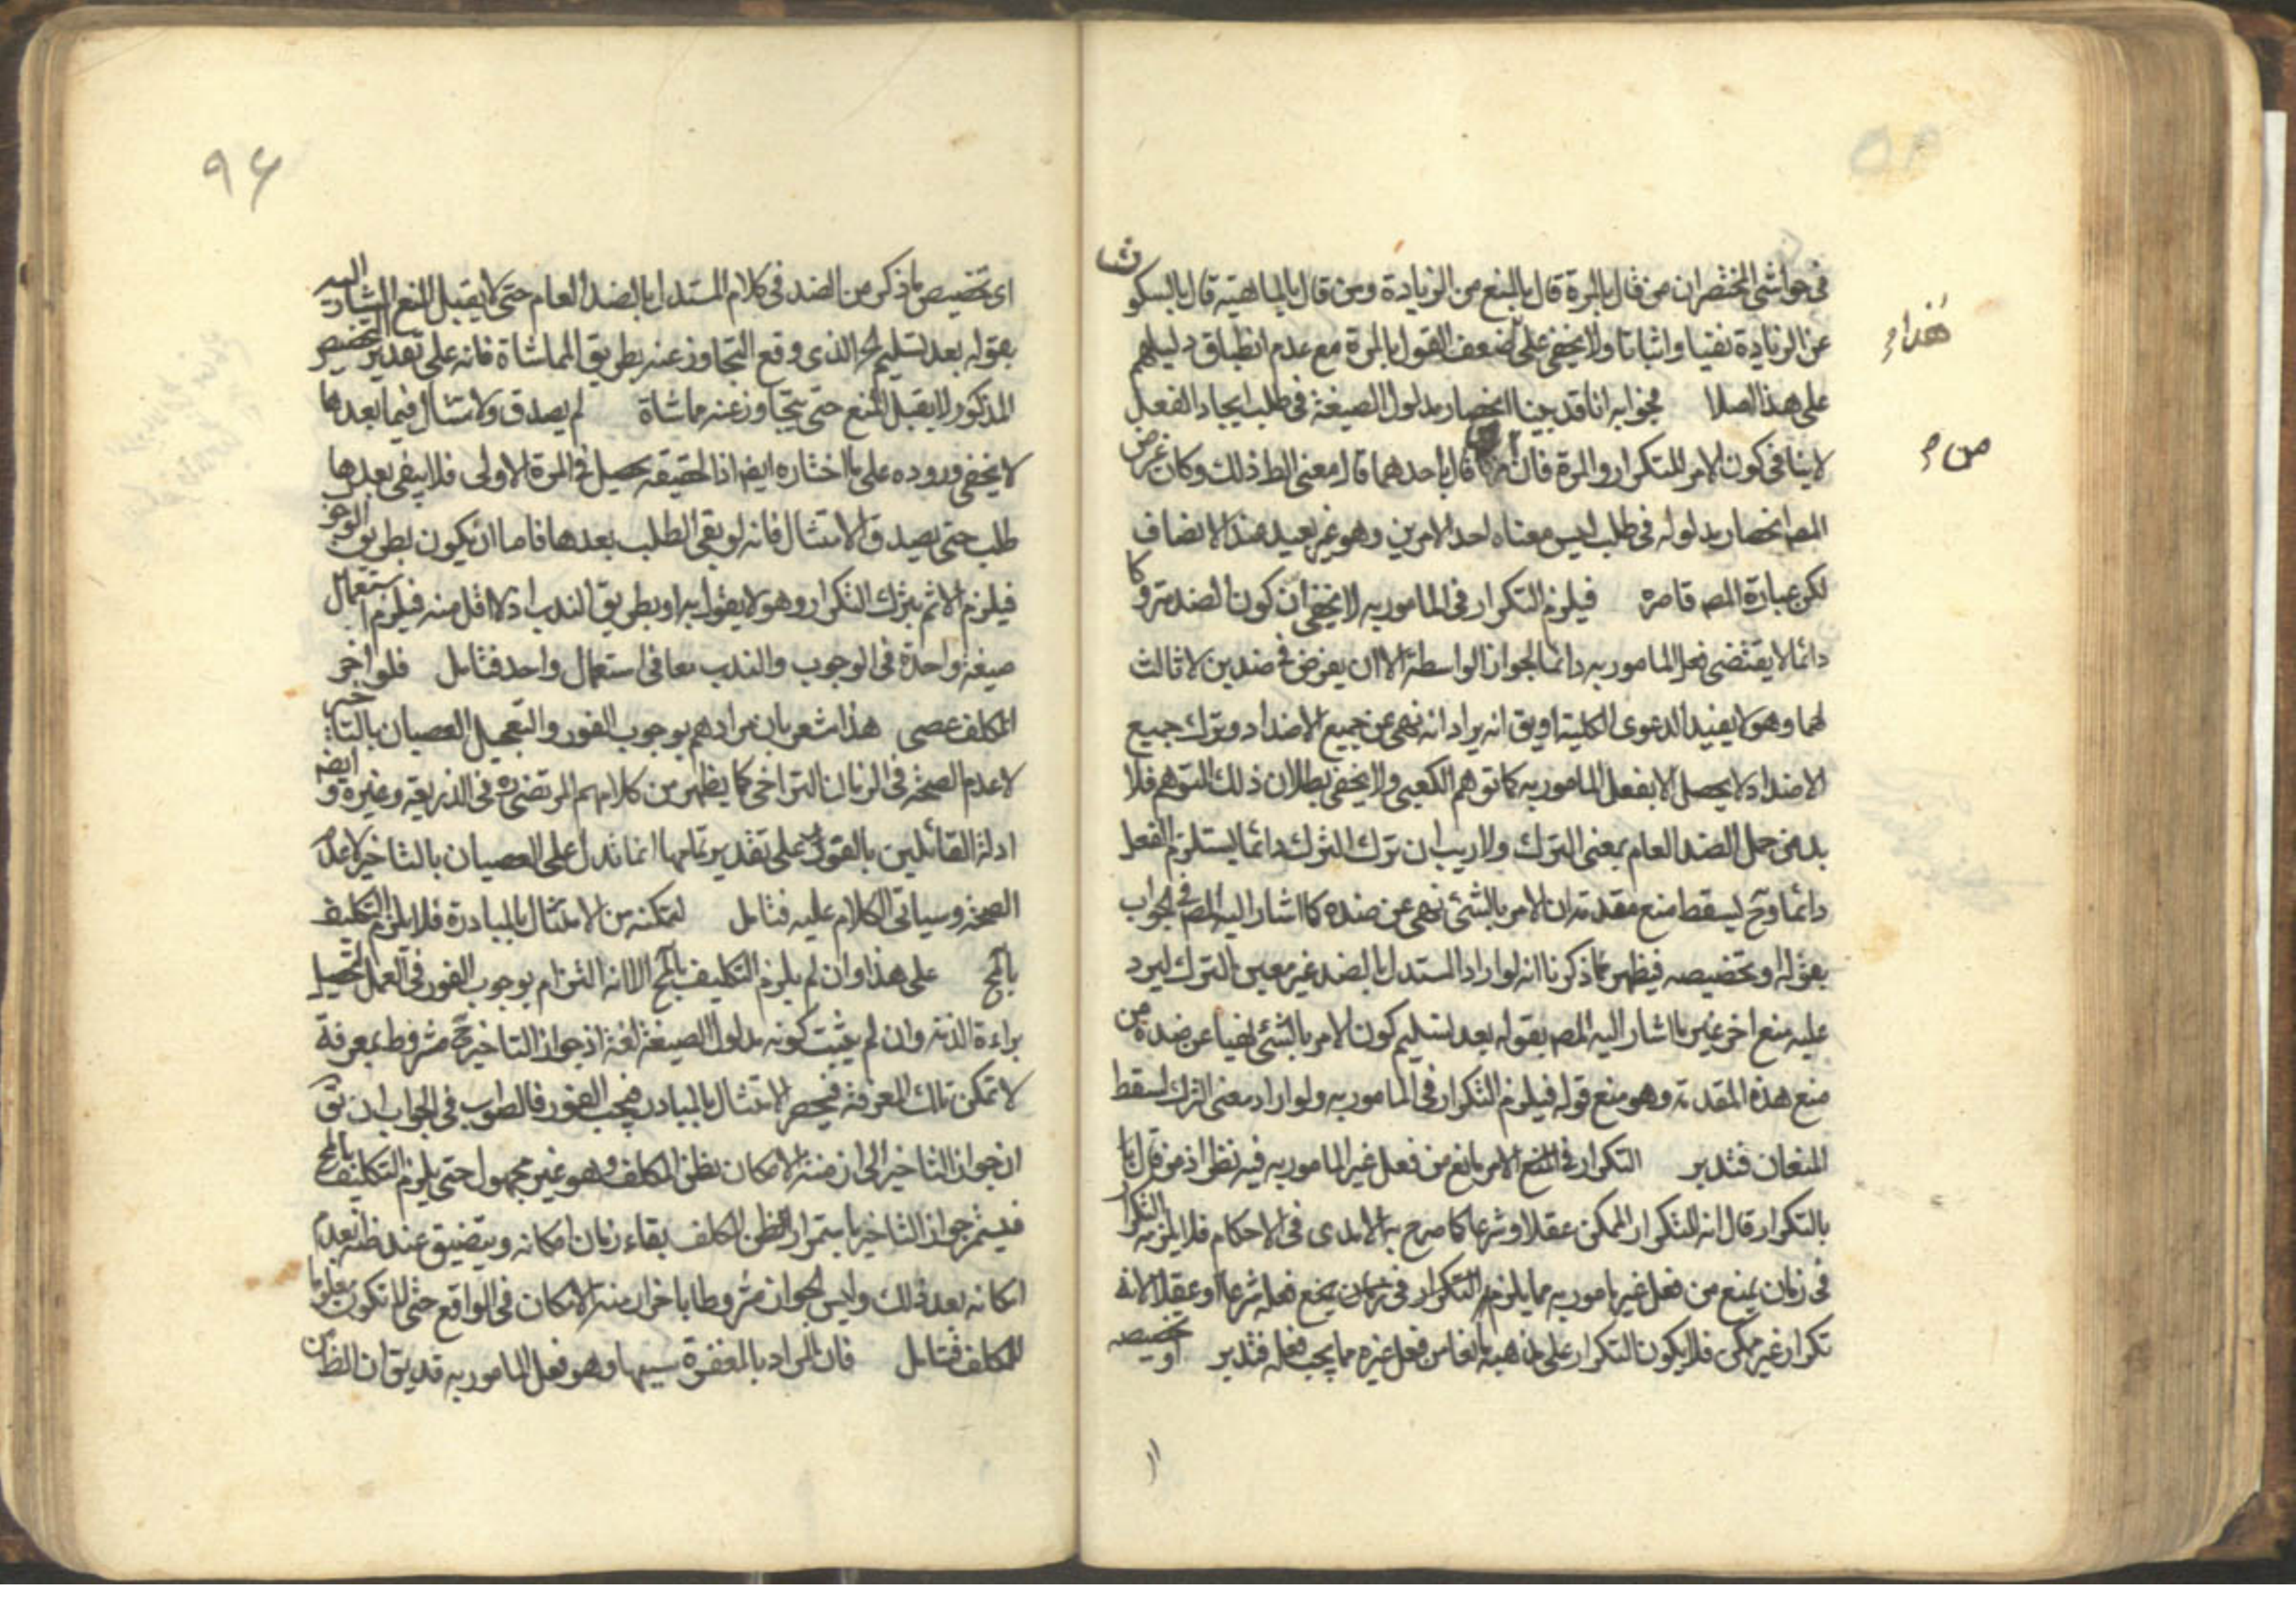 في حواشي المختصر ان من قال بالمرة قال بالمنع من الزيادة ومن قال بالماهية قال بالسكوت
عن الزيادة نفيا واثباتا ولا يخفى على ضعف القول بالمرة مع عدم انطباق دليلهم
هذا
على هذا اصلا فجوابه انا قد بينا انحصار مدلول الصيغة في طلب ايجاد الفعل
لا ينافي كون الامر للتكرار والمرة فان من قال باحدهما قال معنى الطلب ذلك وكان غرض
من
المصـ انحصار مدلوله في طلب ليس معناه احد الامرين وهو غير بعيد عند الانصاف
لكن عبارة المصـ قاصرة فيلزم التكرار في المامور به لا يخفى ان كون الضد متروكا
دائما لا يقتضي فعل المامور به دائما لجواز الواسطة الا ان يفرض في ضدين لا ثالث
لهما وهو لا يفيد الدعوى الكلية او يق انه يراد انه نهى عن جميع الاضداد وترك جميع
الاضداد لا يحصل الا بفعل المامور به كما توهم الكعبي ولا يخفى بطلان ذلك التوهم فلا
بد من حمل الضد العام بمعنى الترك ولا ريب ان ترك الترك دائما يستلزم الفعل
دائما وح يسقط منع مقدمة ان الامر بالشئ نهى عن ضده كما اشار اليه المصـ في الجواب
بقوله او تخصيصه فيظهر مما ذكرنا انه لو اراد المستدل بالضد غير معين الترك ليرد
عليه منع اخر غير ما اشار اليه المصـ بقوله بعد تسليم كون الامر بالشئ نهيا عن ضده من
منع هذه المقدمة وهو منع قوله فيلزم التكرار في المامور به ولو اراد معنى الترك لسقط
المنعان فتدبر التكرار في الامر مانع من فعل غير المامور به فيه نظر اذ من قال
بالتكرار قال انه للتكرار الممكن عقلا وشرعا كما صرح به الامدى في الاحكام فلا يلزمه التكرار
في زمان يمنع من فعل غير مامور به مما يلزم التكرار في زمان يمنع فعله شرعا او عقلا لانه
تكرار غير ممكن فلا يكون التكرار على مذهبه مانعا من فعل غيره مما يجب فعله فتدبر او تخصيصه
٩٦
اى تخصيص ما ذكر من الضد في كلام المستدل بالضد العام حتى لا يقبل المنع المشار اليه
بقوله بعد تسليم الذي وقع التجاوز عنه بطريق المماشاة فانه على تقدير التخصيص
المذكور لا يقبل المنع حتى يتجاوز عنه مماشاة لم يصدق الامتثال فيما بعدها
لا يخفى وروده على ما اختاره ايضا اذ الحقيقة يحصل في المرة الاولى فلا يبقى بعدها
طلب حتى يصدق الامتثال فانه لو بقى الطلب بعدها فاما ان يكون بطريق الوجوب
فيلزم الاثم بترك التكرار وهو لا يقول به او بطريق الندب اذ لا اقل منه فيلزم استعمال
صيغة واحدة في الوجوب والندب معا في استعمال واحد فتامل فلو اخر
المكلف عصى هذا مشعر بان مرادهم بوجوب الفور والتعجيل العصيان بالتاخير
لا عدم الصحة في الزمان التراخي كما يظهر من كلام المرتضى ره في الذريعة وغيره وايضا
ادلة القائلين بالفور على تقدير تمامها انما تدل على العصيان بالتاخير لا عدم
الصحة وسياتي الكلام عليه فتامل لتمكنه من الامتثال بالمبادرة فلا يلزم التكليف
بالمح على هذا وان لم يلزم التكليف بالمح الا انه التزام بوجوب الفور في العمل لتحصيل
براءة الذمة وان لم يثبت كونه مدلول الصيغة لغة اذ جواز التاخير ح مشروط بمعرفة
لا تمكن تلك المعرفة فينحصر الامتثال بالمبادرة فيجب الفور فالصواب في الجواب ان يق
ان جواز التاخير الى ازمنة الامكان بظن المكلف وهو غير مجهول حتى يلزم التكليف بالمح
فيستمر جواز التاخير باستمرار ظن المكلف بقاء زمان امكانه ويتضيق عند ظنه بعدم
امكانه بعد ذلك وليس الجواز مشروطا باخر ازمنة الامكان في الواقع حتى لا يكون معلوما
للمكلف فتامل فان المراد بالمغفرة سببها وهو فعل المامور به قد يق ان الظ من